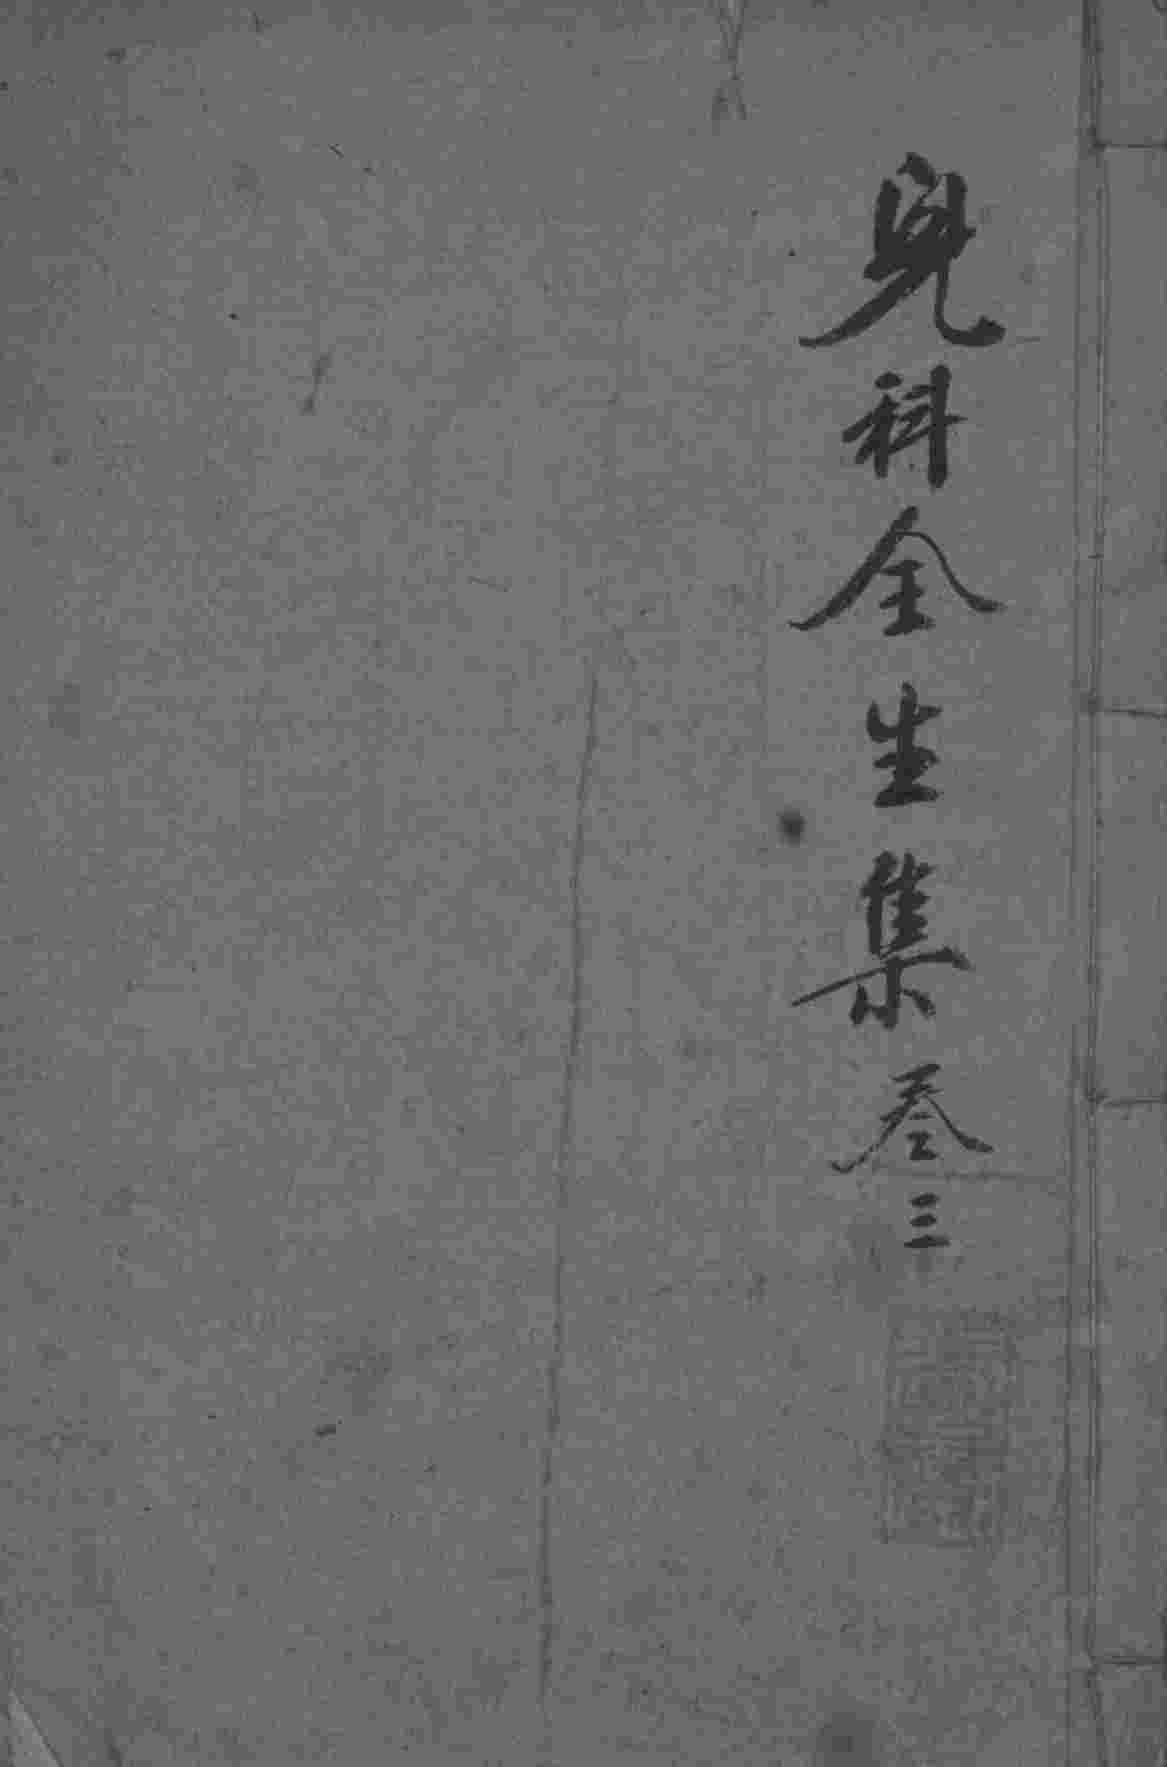 兒科全生集叁三